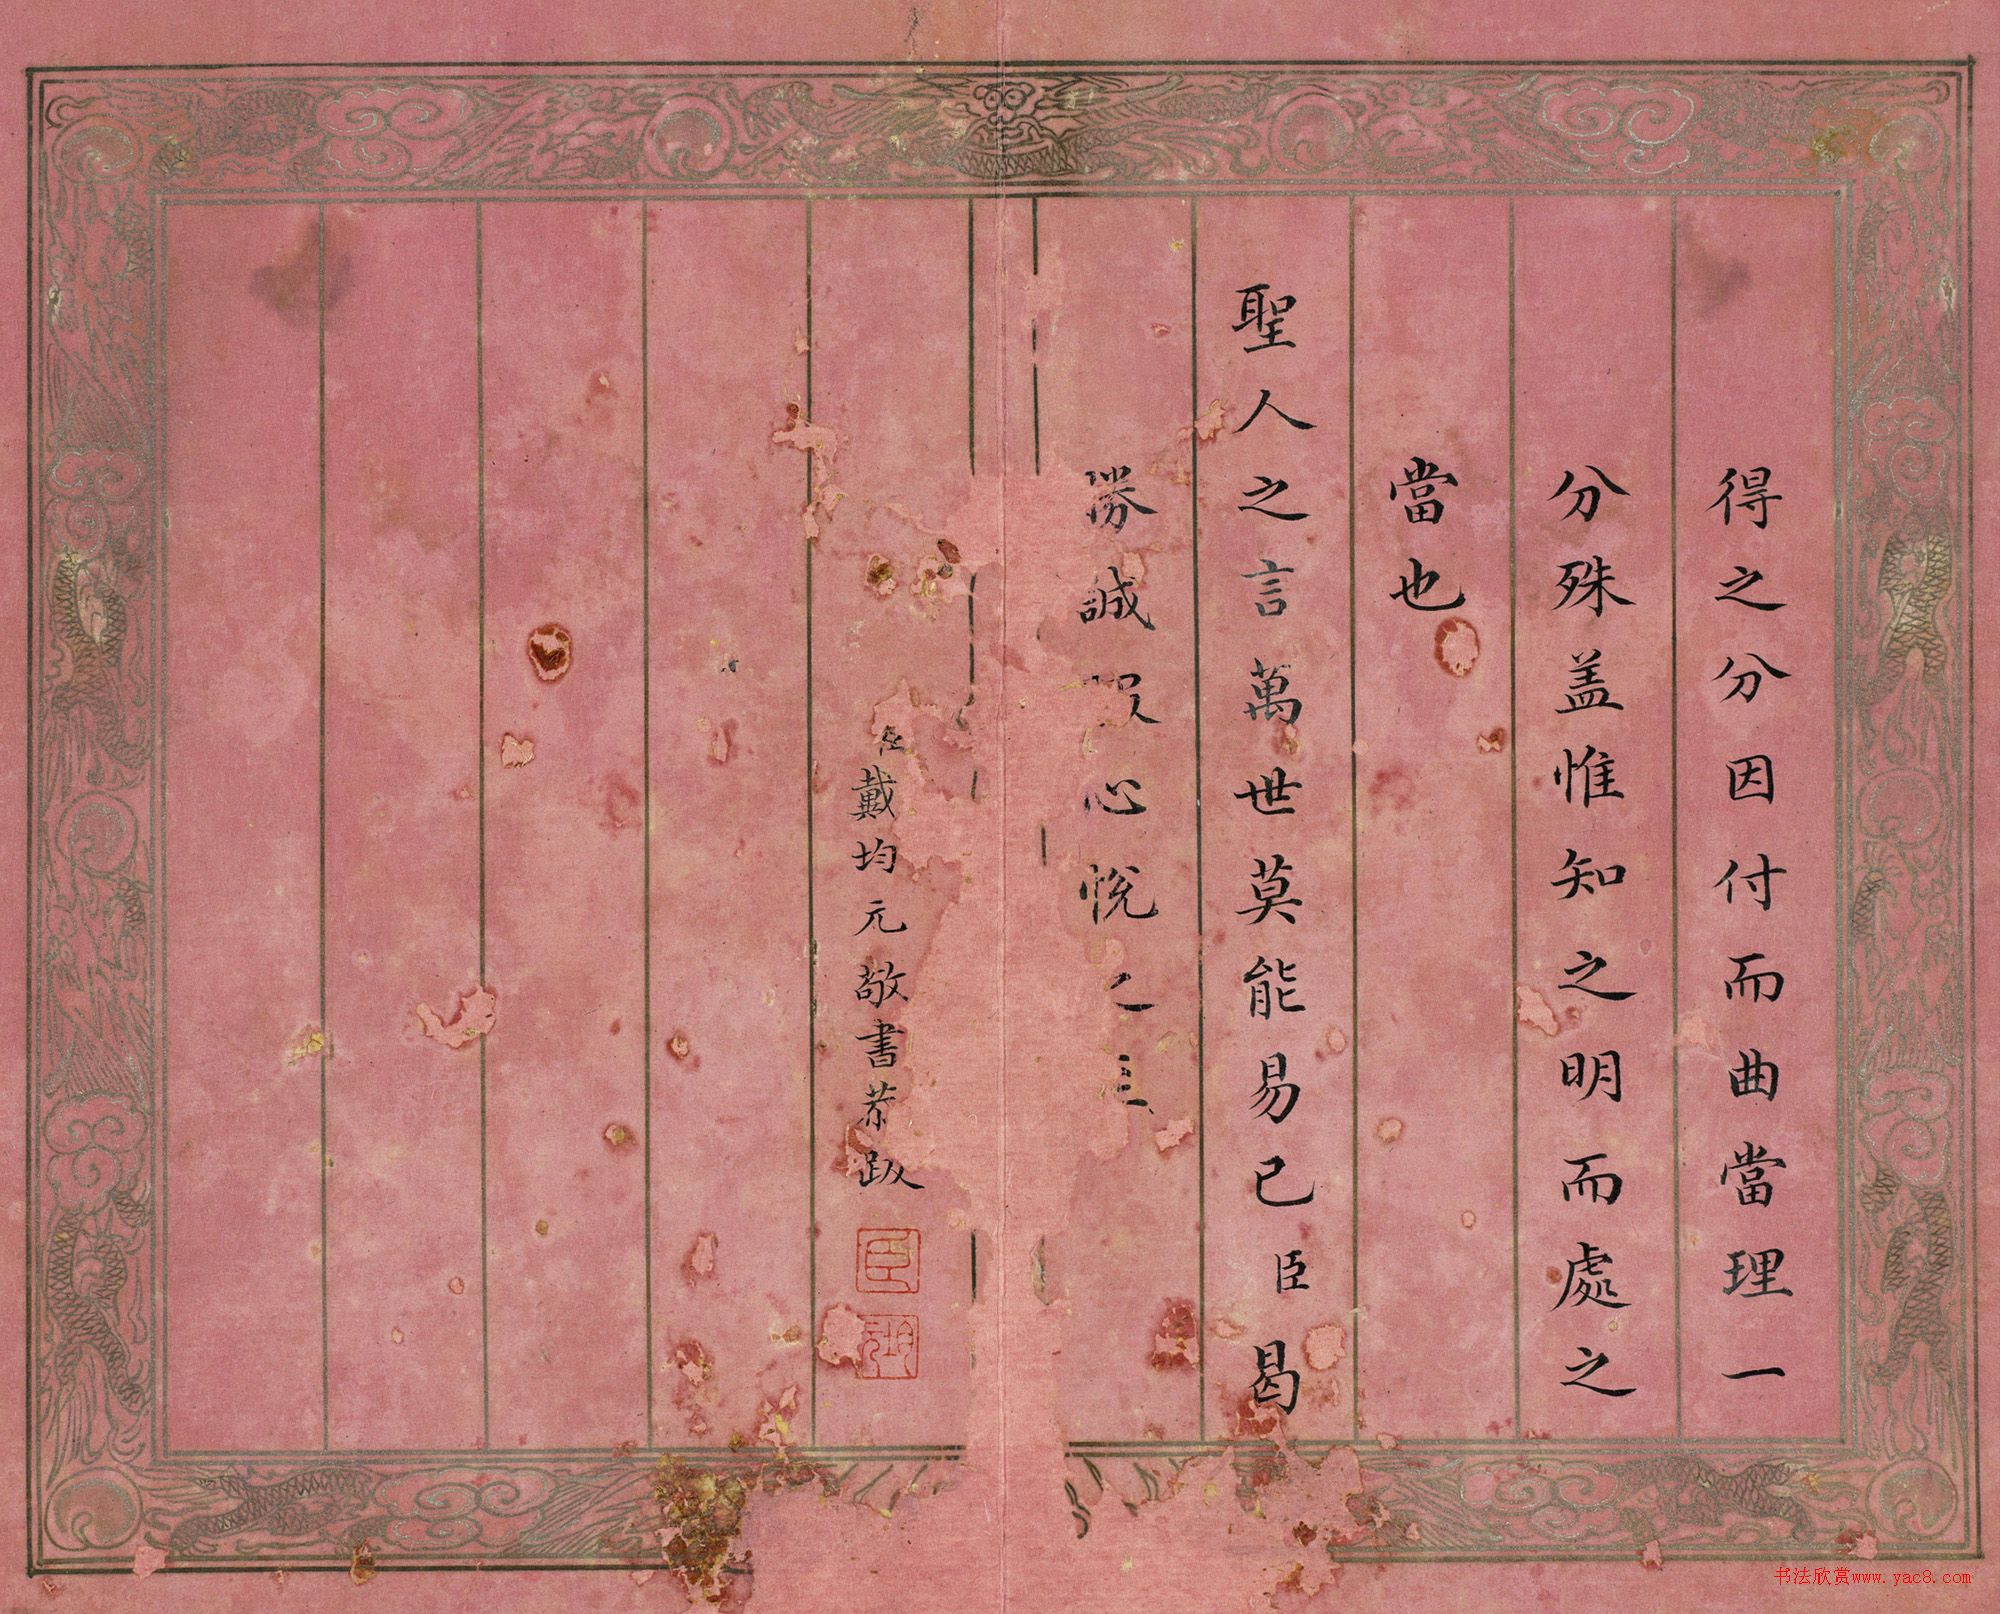 得之分因付而曲當理一
分殊盖惟知之明而處之
當也
聖人之言萬世莫能易已臣曷
勝誠服心悅之至
臣戴均元敬書恭跋
臣
书法欣赏www.yac8.com